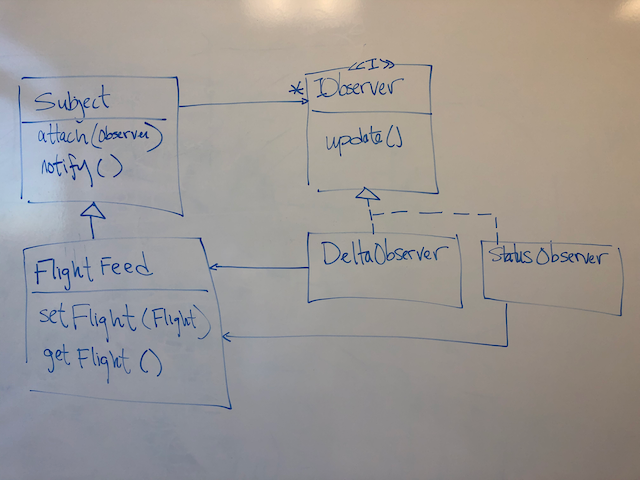 Subject
attach(Observer)
notify()
<<I>>
* IObserver
update()
FlightFeed
setFlight(Flight)
getFlight()
DeltaObserver
StatusObserver